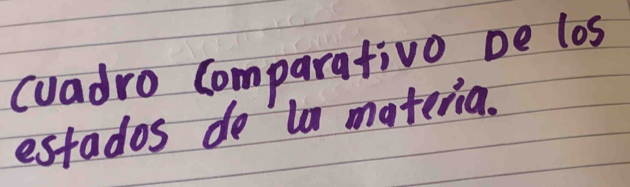 cuadro comparativo De los
estados de la materia.